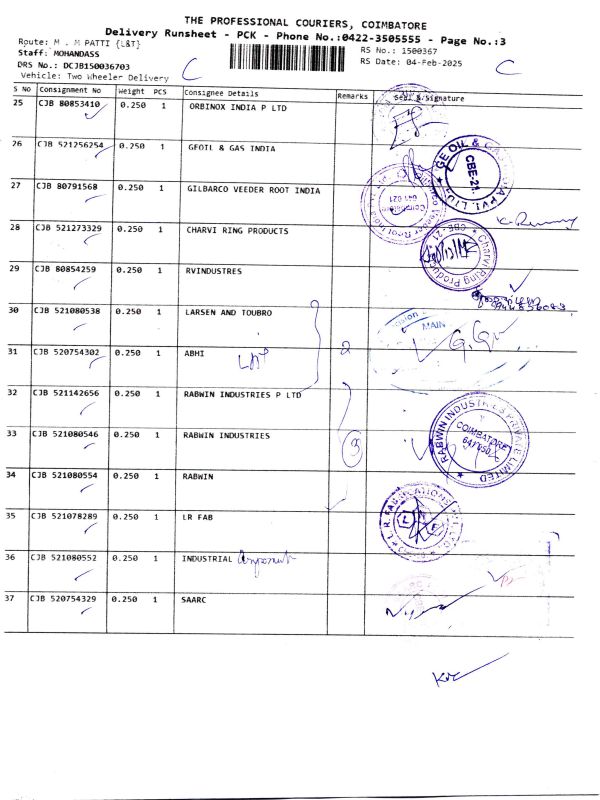 THE PROFESSIONAL COURIERS, COIMBATORE
Delivery Runsheet - PCK - Phone No.:0422-3505555 - Page No.:3
Route: M . M PATTI {L&T}
Staff: MOHANDASS
RS No.: 1500367
DRS No.: DCJB150036703
RS Date: 04-Feb-2025
Vehicle: Two Wheeler Delivery
C
C
S No Consignment No Weight PCS Consignee Details Remarks Seal & Signature
25 CJB 80853410 0.250 1 ORBINOX INDIA P LTD
26 CJB 521256254 0.250 1 GEOIL & GAS INDIA
GE OIL & GAS INDIA PVT. LTD. CBE-21.
27 CJB 80791568 0.250 1 GILBARCO VEEDER ROOT INDIA
Coimbatore 641 021
28 CJB 521273329 0.250 1 CHARVI RING PRODUCTS
Charvi Ring Products CBE-21
29 CJB 80854259 0.250 1 RVINDUSTRES
30 CJB 521080538 0.250 1 LARSEN AND TOUBRO
MAIN
31 CJB 520754302 0.250 1 ABHI L&T 2
32 CJB 521142656 0.250 1 RABWIN INDUSTRIES P LTD
RABWIN INDUSTRIES PRIVATE LIMITED COIMBATORE 641 050
33 CJB 521080546 0.250 1 RABWIN INDUSTRIES 3
34 CJB 521080554 0.250 1 RABWIN
35 CJB 521078289 0.250 1 LR FAB
L.R. FABRICATIONS
36 CJB 521080552 0.250 1 INDUSTRIAL
37 CJB 520754329 0.250 1 SAARC